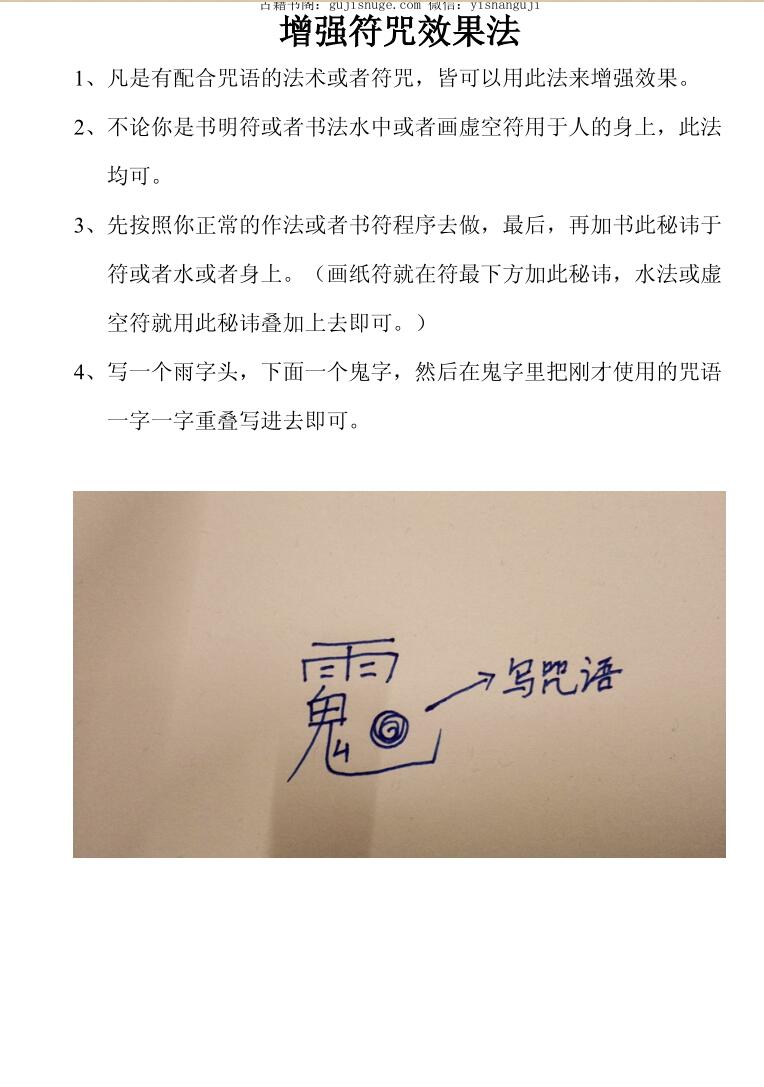 古籍书阁: gujishuge.com 微信: yishanguji
增强符咒效果法
1、凡是有配合咒语的法术或者符咒，皆可以用此法来增强效果。
2、不论你是书明符或者书法水中或者画虚空符用于人的身上，此法
均可。
3、先按照你正常的作法或者书符程序去做，最后，再加书此秘讳于
符或者水或者身上。（画纸符就在符最下方加此秘讳，水法或虚
空符就用此秘讳叠加上去即可。）
4、写一个雨字头，下面一个鬼字，然后在鬼字里把刚才使用的咒语
一字一字重叠写进去即可。
雨
鬼
写咒语